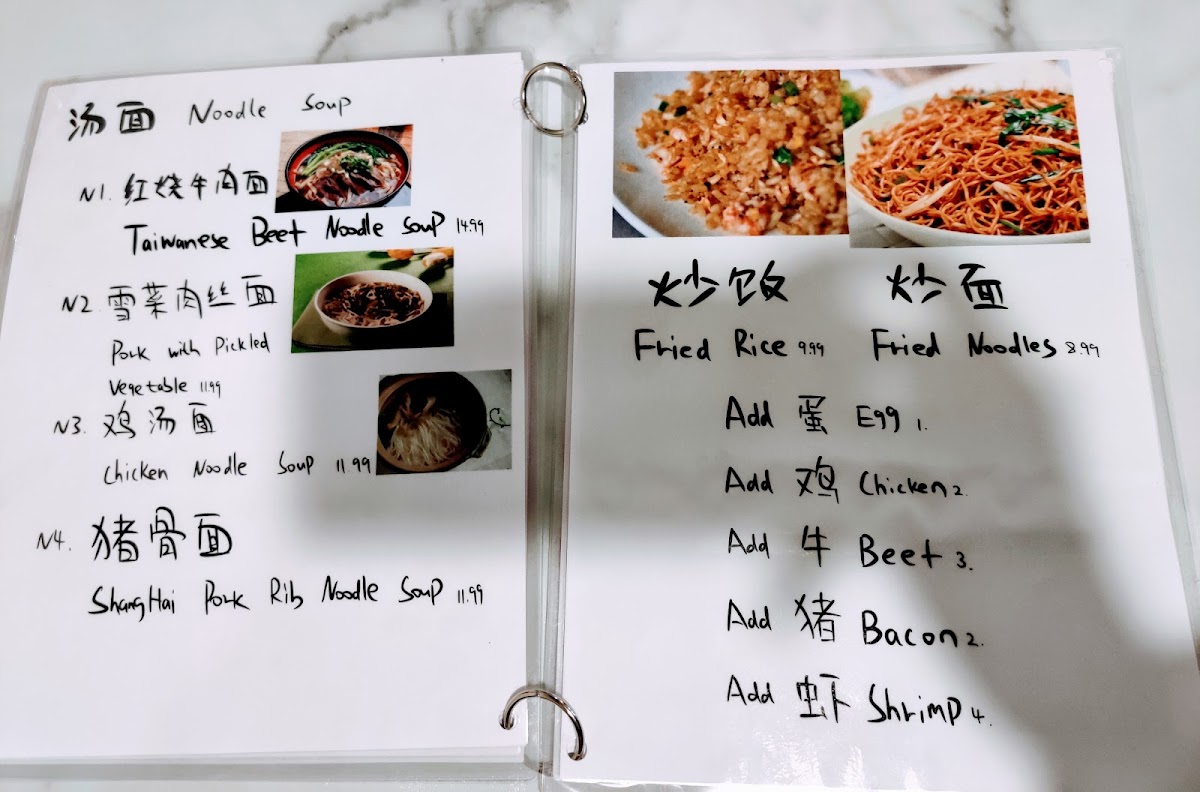 汤面 Noodle Soup
N1. 红烧牛肉面
Taiwanese Beef Noodle Soup 14.99
N2. 雪菜肉丝面
Pork with Pickled
Vegetable 11.99
N3. 鸡汤面
Chicken Noodle Soup 11.99
N4. 猪骨面
ShangHai Pork Rib Noodle Soup 11.99
炒饭 炒面
Fried Rice 9.99 Fried Noodles 8.99
Add 蛋 Egg 1.
Add 鸡 Chicken 2.
Add 牛 Beef 3.
Add 猪 Bacon 2.
Add 虾 Shrimp 4.